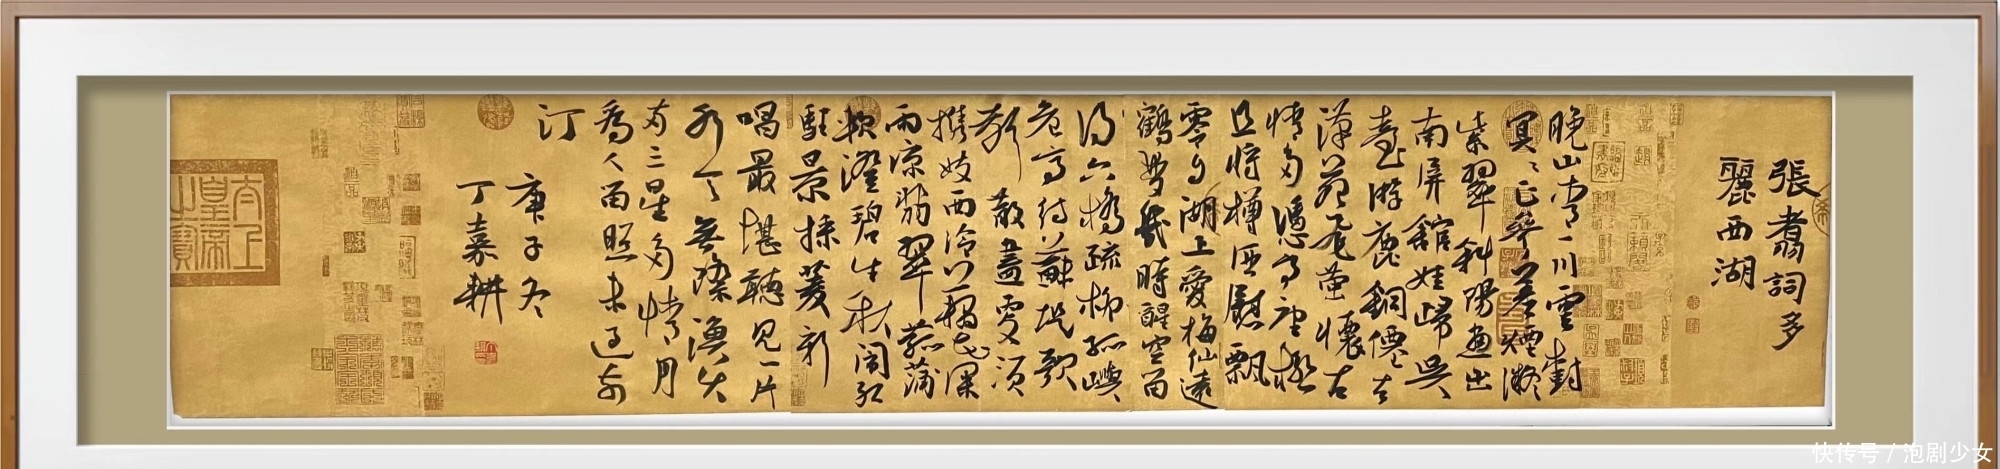 張翥詞多
麗西湖
晚山青一川雲樹
冥々正參差煙凝
紫翠斜陽畫出
南屏館娃歸吳
臺游鹿銅僊去
漢苑飛螢懷古
情多憑高望極
且將樽酒慰飄
零自湖上愛梅仙遠
鶴夢幾時醒空留
得六橋疏柳孤嶼
危亭待蘇堤歌
聲 散盡更須
攜妓西泠藕花深
雨涼翡翠菰蒲
軟澄碧生秋鬧紅
駐景採菱新
唱最堪聽見一片
水天無際漁火
兩三星多情月
為人留照未過前
汀
庚子冬
丁嘉耕
太上皇帝之寶
快传号／泡剧少女